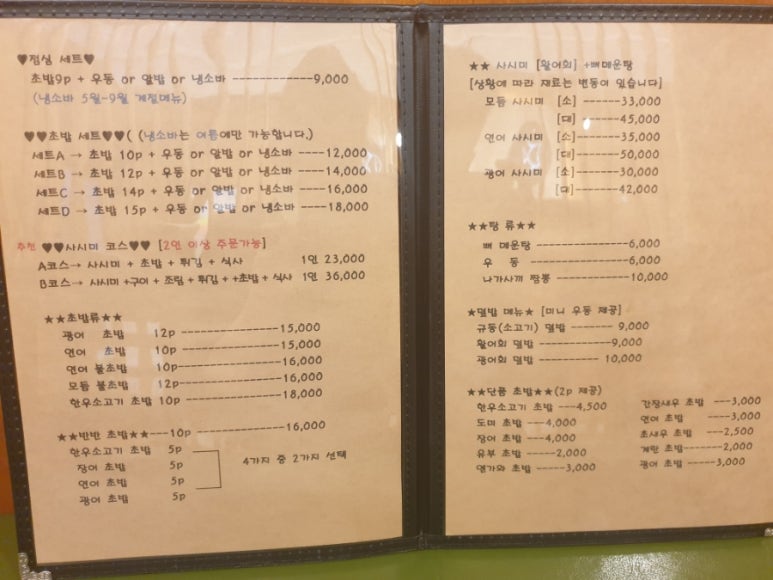 ♥점심 세트♥
초밥9p + 우동 or 알밥 or 냉소바 -------------9,000
(냉소바 5월~9월 계절메뉴)
♥♥초밥 세트♥♥( (냉소바는 여름에만 가능합니다.)
세트A → 초밥 10p + 우동 or 알밥 or 냉소바 ----12,000
세트B → 초밥 12p + 우동 or 알밥 or 냉소바 ----14,000
세트C → 초밥 14p + 우동 or 알밥 or 냉소바 ----16,000
세트D → 초밥 15p + 우동 or 알밥 or 냉소바 ----18,000
추천 ♥♥사시미 코스♥♥ [2인 이상 주문가능]
A코스→ 사시미 + 초밥 + 튀김 + 식사 1인 23,000
B코스→ 사시미 +구이 + 조림 + 튀김 + +초밥 + 식사 1인 36,000
★★초밥류★★
광어 초밥 12p ----------------15,000
연어 초밥 10p ----------------15,000
연어 불초밥 10p----------------16,000
모듬 불초밥 12p----------------16,000
한우소고기 초밥 10p ----------------18,000
★★반반 초밥★★---10p ----------------16,000
한우소고기 초밥 5p
장어 초밥 5p
4가지 중 2가지 선택
연어 초밥 5p
광어 초밥 5p
★★ 사시미 [활어회] +뼈매운탕
[상황에 따라 재료는 변동이 있습니다]
모듬 사시미 [소] -------33,000
[대] ------45,000
연어 사시미 [소]-------35,000
[대]-------50,000
광어 사시미 [소]-------30,000
[대]-------42,000
★★탕 류★★
뼈 매운탕 -----------------6,000
우 동 -----------------6,000
나가사끼 짬뽕 -----------10,000
★덮밥 메뉴★ [미니 우동 제공]
규동(소고기) 덮밥 ------- 9,000
활어회 덮밥 -------------9,000
광어회 덮밥 ---------- 10,000
★★단품 초밥★★(2p 제공)
한우소고기 초밥 ---4,500
도미 초밥 ---4,000
장어 초밥 ----4,000
유부 초밥 -----2,000
연가와 초밥 -----3,000
간장새우 초밥 ---3,000
연어 초밥 ----3,000
초새우 초밥 ---2,500
계란 초밥------2,000
광어 초밥 -----3,000